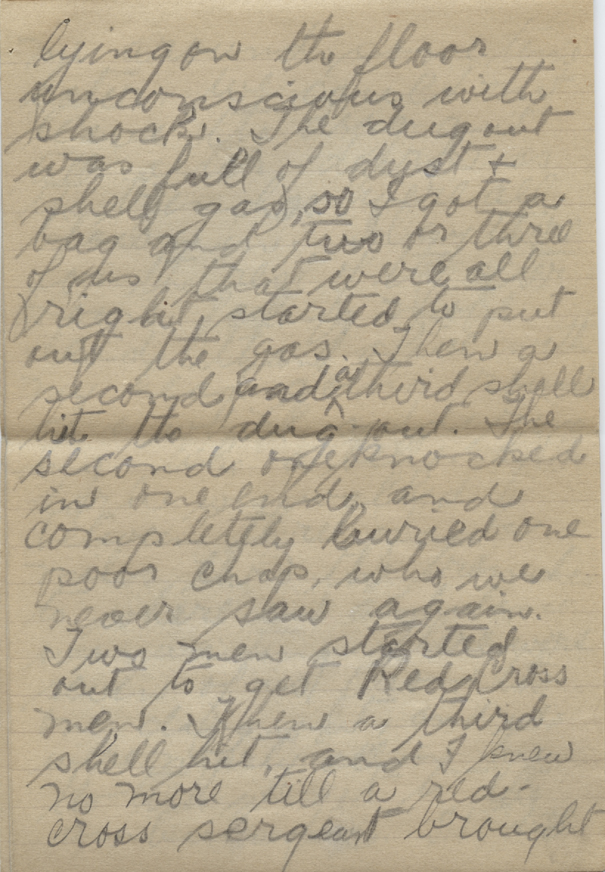 lying on the floor
unconscious with
shock. The dugout
was full of dust +
shell gas, so I got a
bag and two or three
of us that were all
right, started to put
out the gas. Then a
second and a third shell
hit the dug-out. The
second one knocked
in one end, and
completely buried one
poor chap, who we
never saw again.
Two men started
out to get Red Cross
men. Then a third
shell hit, and I knew
no more till a red-
cross sergeant brought